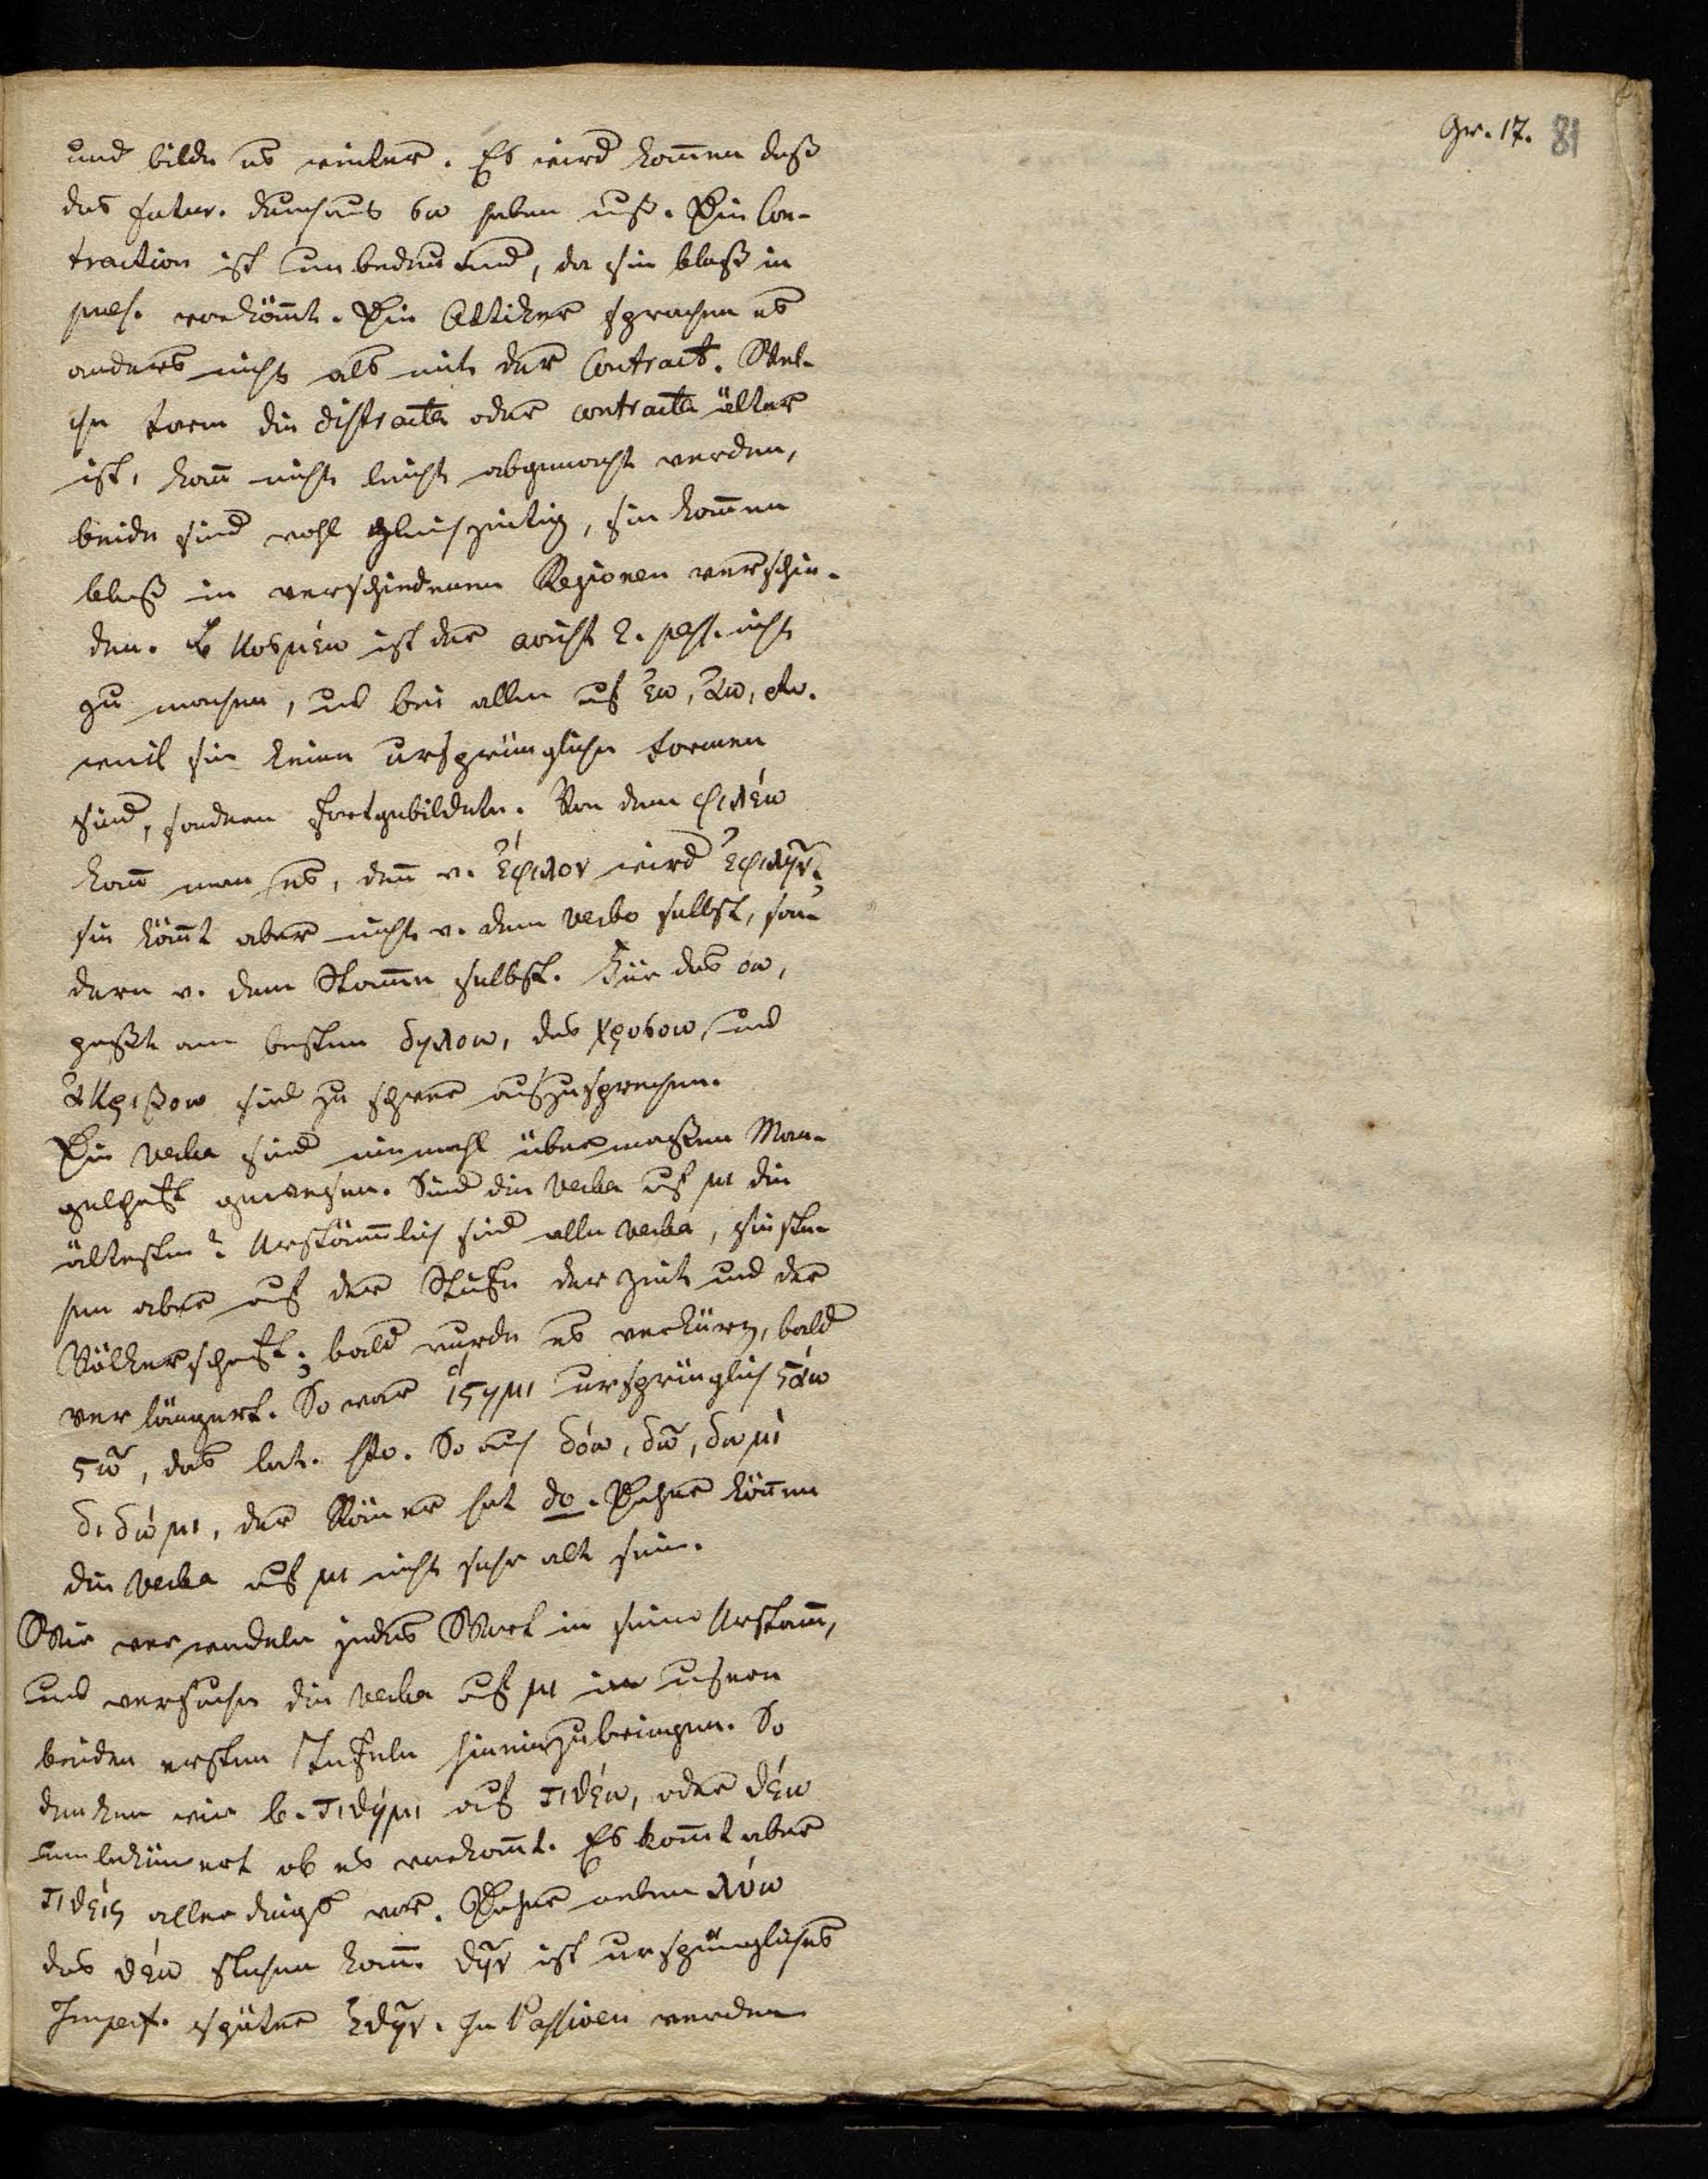 Gr. 17. 81
und bilde es weiter. Es wird kom̅en daß
das futur. durchaus σω haben muß. Die Con-
traction ist unbedeutend, da sie bloß in
praes. vorköm̅t. Die Attiker sprachen es
anders nicht als mit der Contract. Wel-
che Form die distracta oder contracta älter
ist, kan̅ nicht leicht abgemacht werden,
beide sind wohl gleichzeitig, sie kom̅en
bloß in verschiedenen Regionen verschie-
den. κοσμέω ist der aorist 2. pass. nicht
zu machen, und bei allen auf έω, άω, etc.
weil sie keine ursprünglichen Formen
sind, sondern fortgebildete. Von dem φιλέω
kan̅ man es, den̅ v. ἔφιλον wird ἐφιλην.
sie köm̅t aber nicht v. dem Verbo selbst, son-
dern v. dem Stam̅e selbst. Für das όω,
paßt am besten δηλοω, das χρυσοω, und
ἀκριβοω sind zu schwer auszusprechen.
Die Verba sind einmahl übermaßen Man-
gelhaft gewesen. Sind die Verba auf μι die
ältesten? Urstäm̅lich sind alle Verba, sie ste-
hen aber auf der Stufe der Zeit und der
Völkerschaft; bald wurde es verkürzt, bald
verlängert. So war ἵστημι ursprünglich στάω
στῶ, das lat. sto. So auch δόω, δῶ, δωμι
διδώμι, der Römer hat do. Daher kön̅en
die Verba auf μι nicht sehr alt sein.
Wir verwandeln jedes Wort in seine Urstam̅,
und versuchen die Verba auf μι in unsern
beiden ersten Tafeln hineinzubringen. So
denken wir b. τιθήμι auf τιθέω, oder θέω
unbeküm̅ert ob es vorkom̅t. Es kom̅t aber
τιθεις allerdings vor. Daher neben λύω
das θέω stehen kan̅. θῆν ist ursprüngliches
Imperf. später ἔθην. In Passiven werden